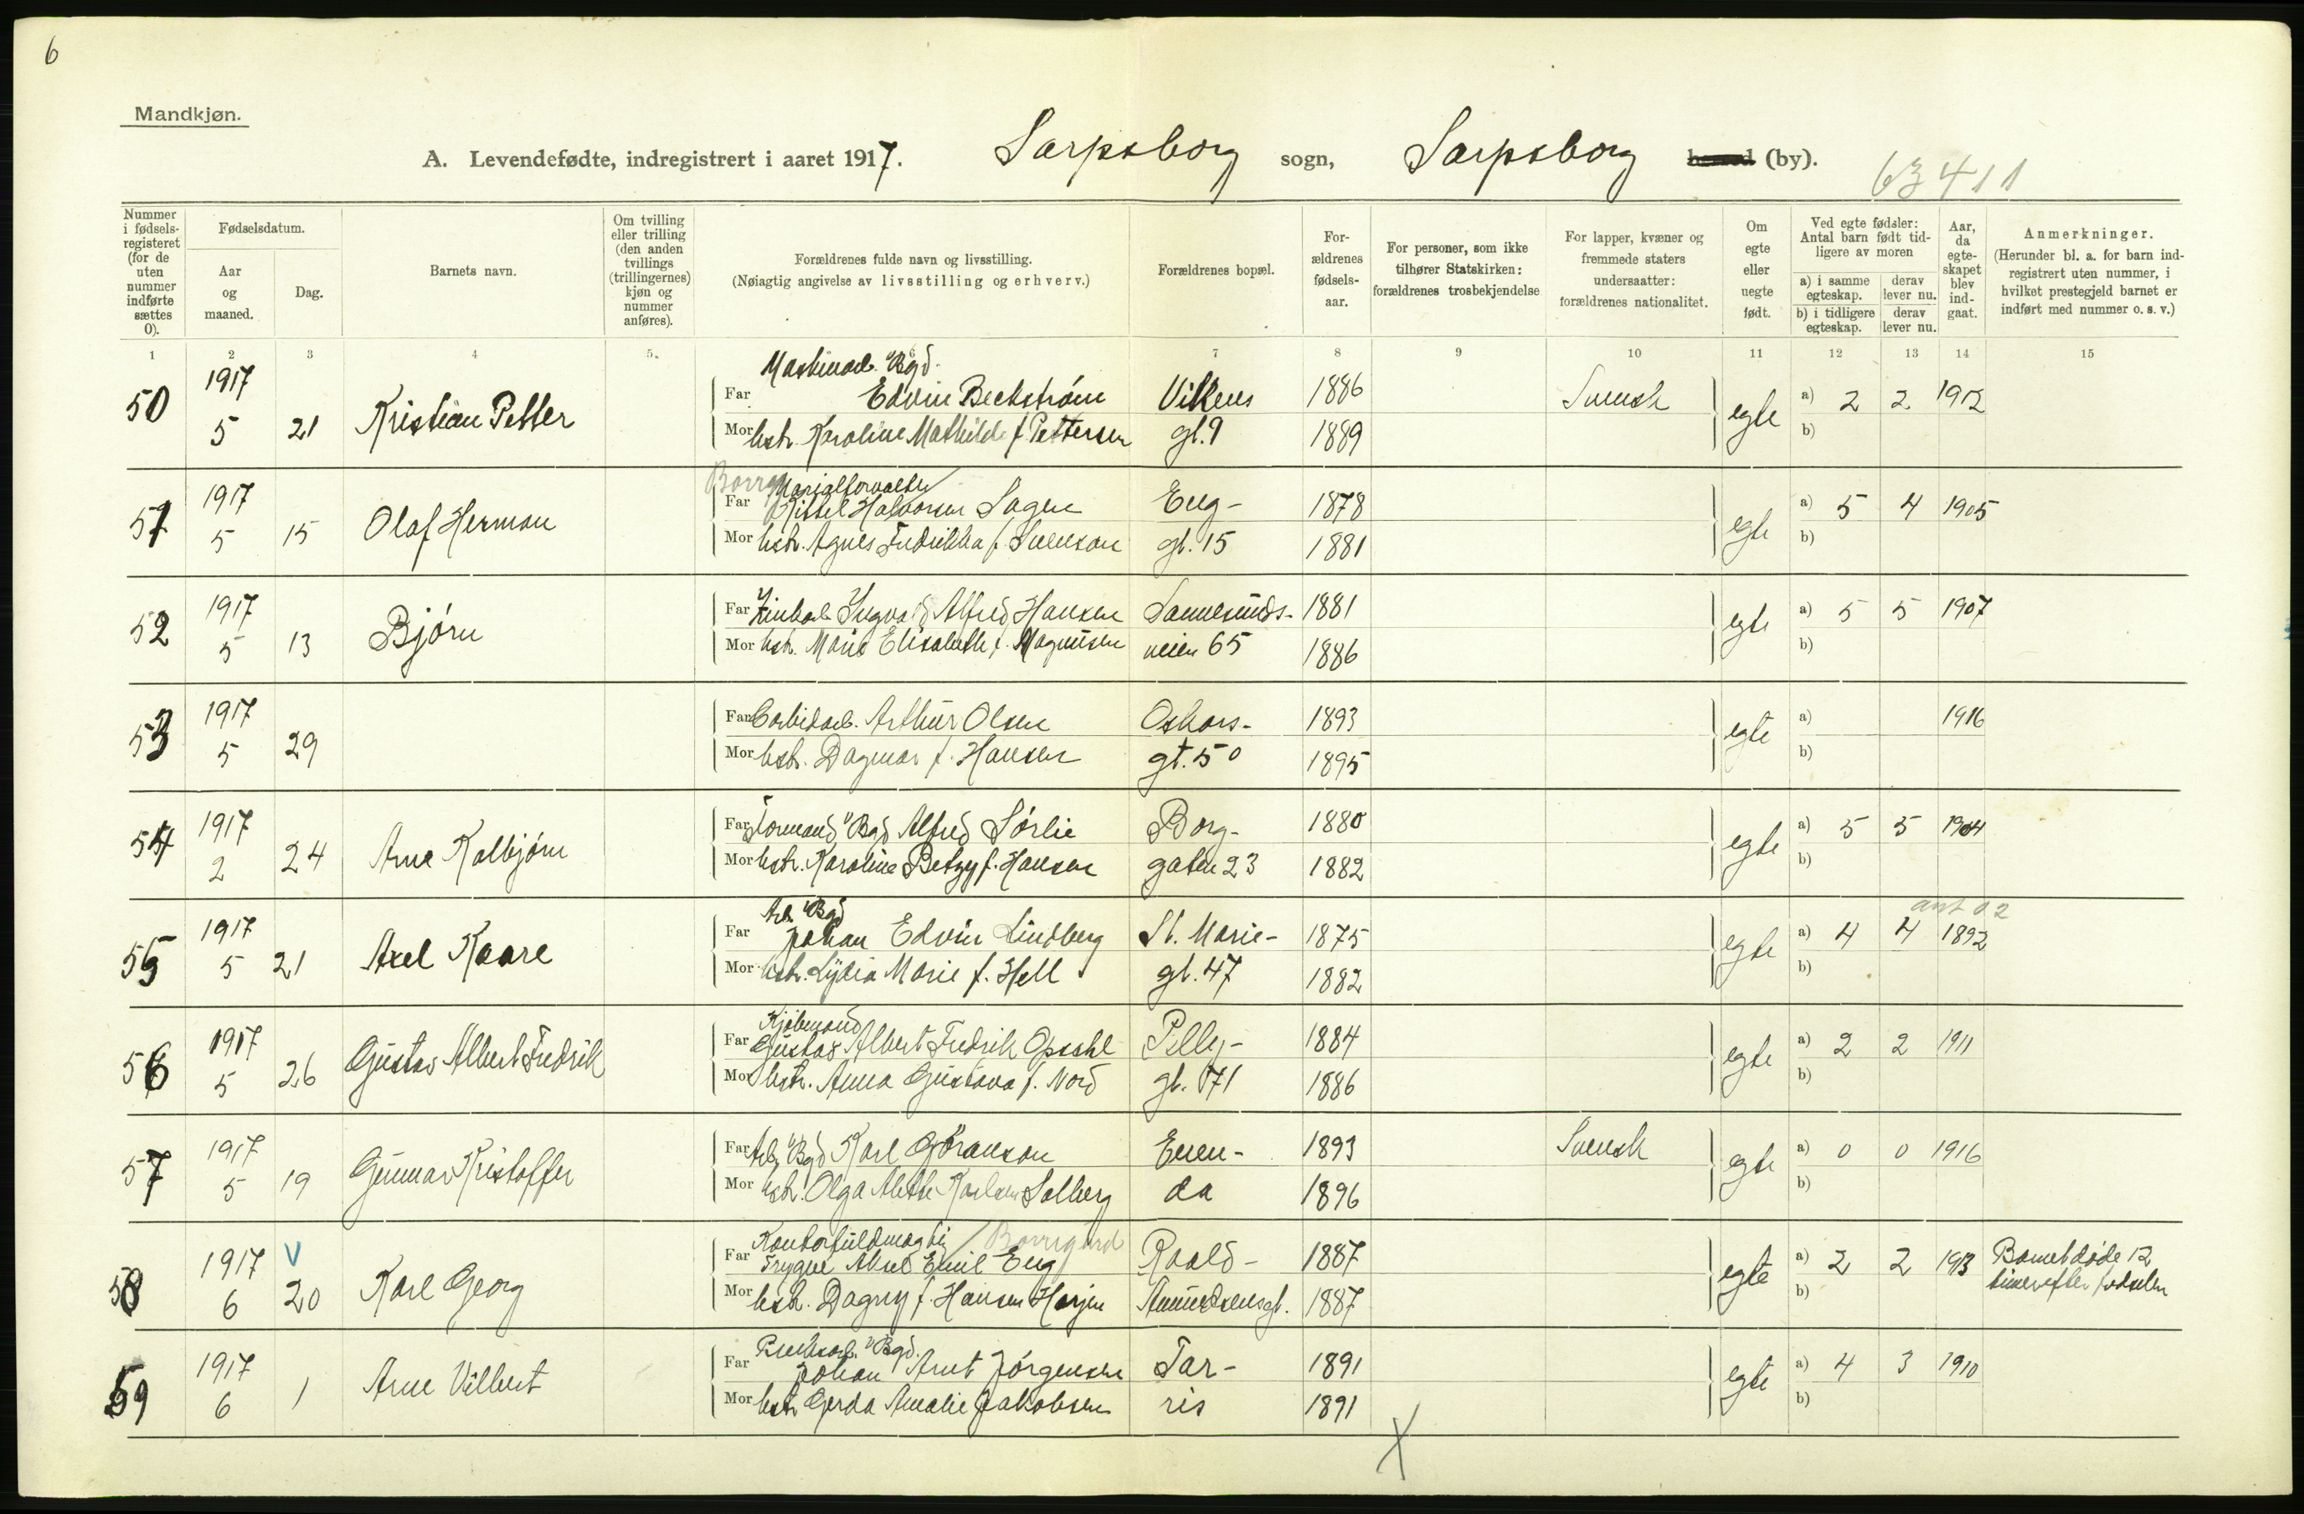 6
Mandkjøn.
A. Levendefødte, indregistrert i aaret 1917. Sarpsborg sogn, Sarpsborg herred (by).
63411
Nummer i fødselsregisteret (for de uten nummer indførte sættes 0).
Fødselsdatum.
Aar og maaned.
Dag.
Barnets navn.
Om tvilling eller trilling (den anden tvillings (trillingernes) kjøn og nummer anføres).
Forældrenes fulde navn og livsstilling.
(Nøiagtig angivelse av livsstilling og erhverv.)
Forældrenes bopæl.
Forældrenes fødselsaar.
For personer, som ikke tilhører Statskirken: forældrenes trosbekjendelse
For lapper, kvæner og fremmede staters undersaatter: forældrenes nationalitet.
Om egte eller uegte født.
Ved egte fødsler: Antal barn født tidligere av moren
a) i samme egteskap.
derav lever nu.
b) i tidligere egteskap.
derav lever nu.
Aar, da egteskapet blev indgaat.
Anmerkninger.
(Herunder bl. a. for barn indregistrert uten nummer, i hvilket prestegjeld barnet er indført med nummer o. s. v.)
1 2 3 4 5. 6 7 8 9 10 11 12 13 14 15
Maskinarb. v/Bgd.
50 1917 Far Edvin Beckstrøm Vikens 1886 Svensk egte a) 2 2 1912
5 21 Kristian Petter Mor hstr. Karoline Mathilde f. Pettersen gt. 9 1889 b)
Borreg
51 1917 Far Kittel Halvorsen Sagen Eng- 1878 egte a) 5 4 1905
5 15 Olaf Herman Mor hstr. Agnes Fredrikka f. Svenson gt. 15 1881 b)
52 1917 Far Ingvald Alfred Hansen Sannesunds- 1881 egte a) 5 5 1907
5 13 Bjørn Mor hstr. Marie Elisabeth f. Magnussen veien 65 1886 b)
53 1917 Far Carbidarb. Arthur Olsen Oskars- 1893 egte a) 1916
5 29 Mor hstr. Dagmar f. Hansen gt. 50 1895 b)
54 1917 Far Formand v/Bgd Alfred Sørlie Borg- 1880 egte a) 5 5 1904
2 24 Arne Kolbjørn Mor hstr. Karoline Betzy f. Hansen gaten 23 1882 b)
Arb. v/Bgd
ant 02
55 1917 Far Johan Edvin Lindberg St. Marie- 1875 egte a) 4 4 1892
5 21 Axel Kaare Mor hstr. Lydia Marie f. Hell gt. 47 1882 b)
Kjøbmand
56 1917 Far Gustav Albert Fredrik Opsahl Pelly- 1884 egte a) 2 2 1911
5 26 Gustav Albert Fredrik Mor hstr. Anna Gustava f. Nord gt. 71 1886 b)
57 1917 Far Arb. v/Bgd Karl Göranson Enen- 1893 Svensk egte a) 0 0 1916
5 19 Gunnar Kristoffer Mor hstr. Olga Alethe Karlsen Solberg da 1896 b)
Kontorfuldmægtig / Borregård
58 1917 V Far Trygve Aksel Emil Eng Roald- 1887 egte a) 2 2 1913 Barnet døde 12
6 20 Karl Georg Mor hstr. Dagny f. Hansen Amundsensgt. 1887 b) timer efter fødselen
v/Bgd.
59 1917 Far Johan Arnt Jørgensen Tar- 1891 egte a) 4 3 1910
6 1 Arne Vilbert Mor hstr Gerda Amalie Jakobsen ris 1891 b)
X